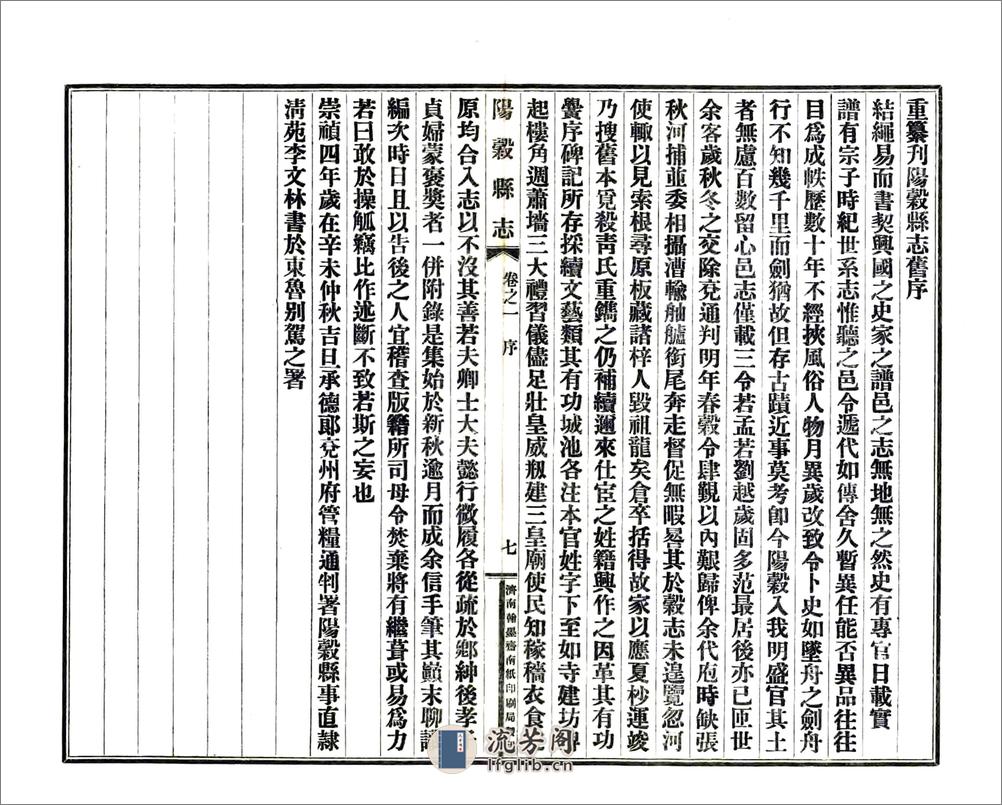 重纂刋陽穀縣志舊序
結繩易而書契興國之史家之譜邑之志無地無之然史有專官日載實
譜有宗子時紀世系志惟聽之邑令遞代如傳舍久暫異任能否異品往往
目爲成帙歷數十年不經挾風俗人物月異歲改致令卜史如墜舟之劍舟
行不知幾千里而劍猶故但存古蹟近事莫考卽今陽穀入我明盛官其土
者無慮百數留心邑志僅載三令若孟若劉越歲固多范最居後亦已匝世
余客歲秋冬之交除兗通判明年春穀令肆覲以內艱歸俾余代庖時缺張
秋河捕重委相攝漕輸舳艫銜尾奔走督促無暇晷其於穀志未遑覽忽河
使輙以見索根尋原板藏諸梓人毀祖龍矣倉卒括得故家以應夏杪運竣
乃捜舊本覓殺靑氏重鐫之仍補續邇來仕宦之姓籍興作之因革其有功
黌序碑記所存採續文藝類其有功城池各注本官姓字下至如寺建坊
起樓角週蕭墻三大禮習儀儘足壯皇威剏建三皇廟使民知稼穡衣食
陽穀縣志
卷之一 序
七
濟南翰墨齋南紙印刷局
原均合入志以不沒其善若夫卿士大夫懿行微履各從疏於鄉紳後孝
貞婦蒙褒奬者一併附錄是集始於新秋逾月而成余信手筆其巓末聊
編次時日且以告後之人宜稽查版籍所司毋令焚棄將有繼葺或易爲力
若曰敢於操觚竊比作述斷不致若斯之妄也
崇禎四年歲在辛未仲秋吉旦承德郞兗州府管糧通判署陽穀縣事直隷
淸苑李文林書於東魯别駕之署
流芳阁
lfglib.cn